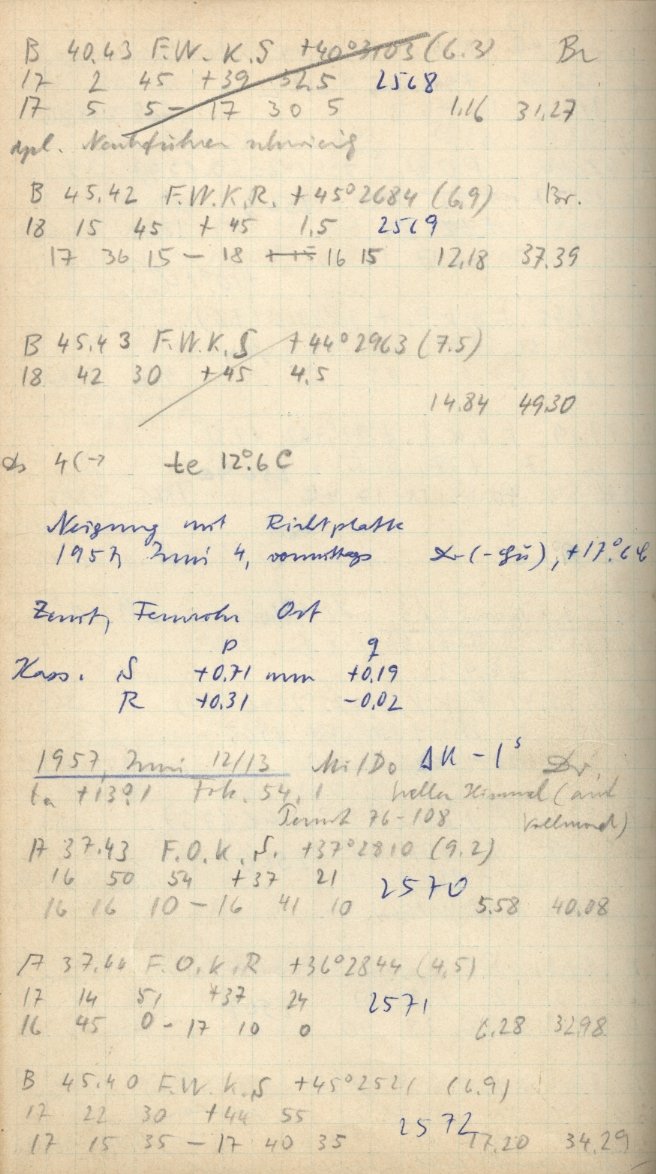 B 40.43 F.W. K.S +40°3103 (6.3) Br
17 2 45 +39 52.5 2568
17 5 5 – 17 30 5 1.16 31.27
dpl. Nachführen schwierig
B 45.42 F.W.K.R. +45°2684 (6.9) Br.
18 15 45 +45 1.5 2569
17 36 15 – 18 16 15 12.18 37.39
B 45.43 F.W.K.S +44°2963 (7.5)
18 42 30 +45 4.5
14.84 49.30
te 12°.6 C
Neigung mit Richtplatte
1957, Juni 4, vormittags Dr (-Gü), +17°.6 C
Zenit, Fernrohr Ost
p q
Kass. S +0.71 mm +0.19
R +0.31 -0.02
1957, Juni 12/13 Mi/Do ΔK – 1ˢ Dr.
ta +13°.1 fok. 54.1 heller Himmel (und
76-108 Vollmond)
A 37.43 F.O.K.S. +37°2810 (9.2)
16 50 54 +37 21 2570
16 16 10 – 16 41 10 5.58 40.08
A 37.44 F.O.K.R +36°2844 (4.5)
17 14 51 +37 24 2571
16 45 0 – 17 10 0 6.28 32.98
B 45.40 F.W.K.S +45°2521 (6.9)
17 22 30 +44 55 2572
17 15 35 – 17 40 35 17.20 34.29